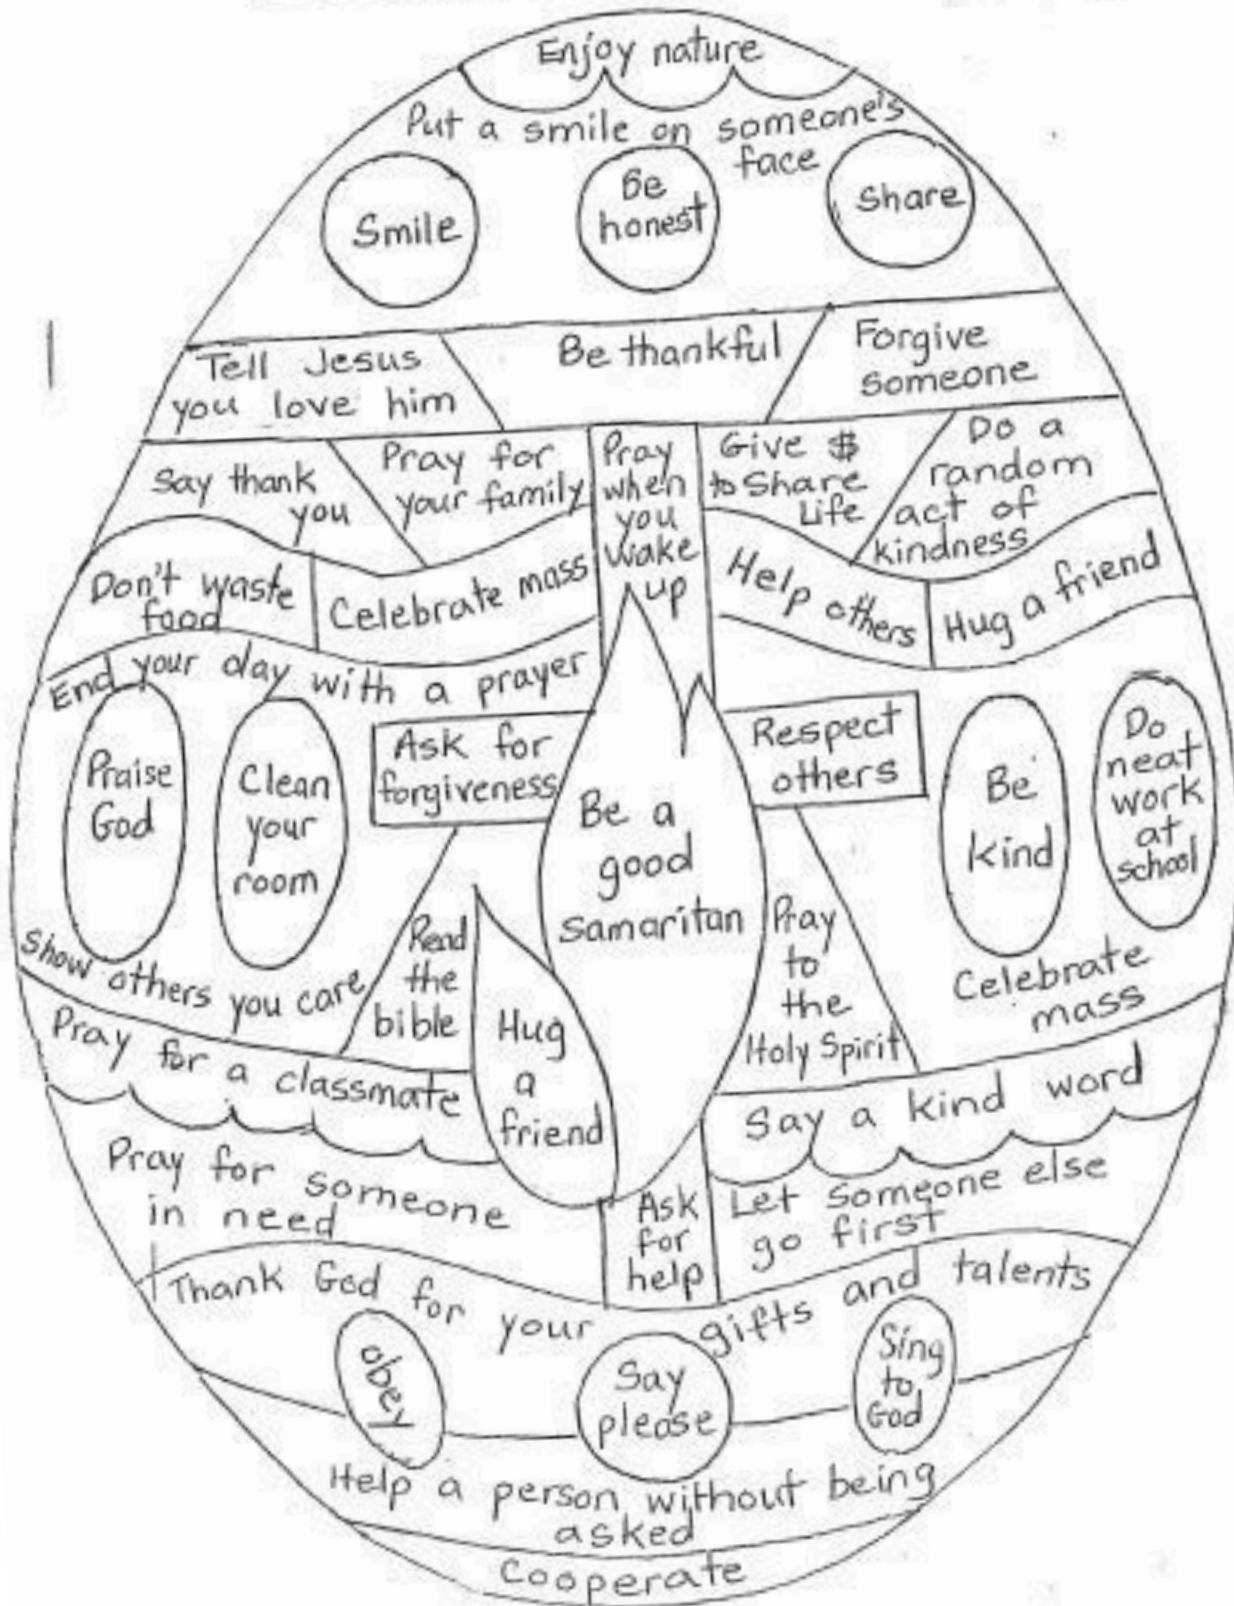 Enjoy nature
Put a smile on someone's
face
Smile
Be
honest
Share
Tell Jesus
you love him
Be thankful
Forgive
someone
Say thank
you
Pray for
your family
Pray
when
you
wake
up
Give $
to Share
Life
Do a
random
act of
kindness
Don't waste
food
Celebrate mass
Help others
Hug a friend
End your day with a prayer
Praise
God
Clean
your
room
Ask for
forgiveness
Be a
good
samaritan
Respect
others
Be
kind
Do
neat
work
at
school
Show others you care
Read
the
bible
Hug
a
friend
Pray
to
the
Holy Spirit
Celebrate
mass
Pray for a classmate
Say a kind word
Pray for someone
in need
Ask
for
help
Let someone else
go first
Thank God for your gifts and talents
obey
Say
please
Sing
to
God
Help a person without being
asked
Cooperate